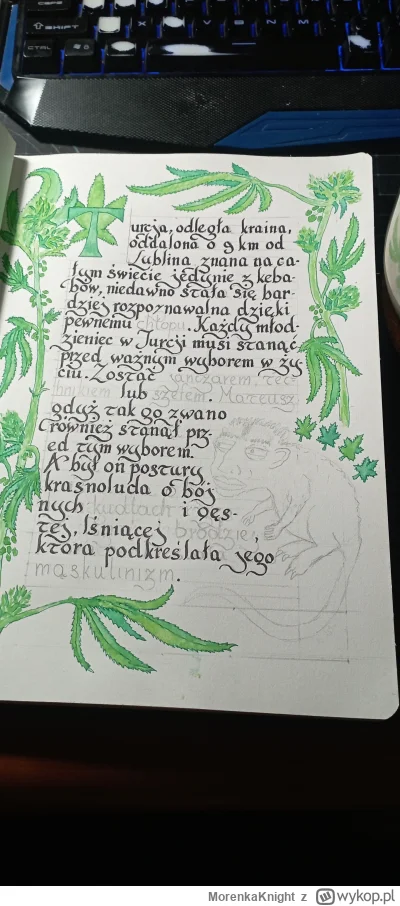 CAPS
SHIFT
CTRL
X
V
B
N
M
Turcja, odległa kraina,
oddalona o 9 km od
Lublina, znana na ca-
łym świecie jedynie z keba-
bów, niedawno stała się bar-
dziej rozpoznawalna dzięki
pewnemu chłopu. Każdy młod-
zieniec w Turcji musi stanąć
przed ważnym wyborem w ży
ciu. Zostać janczarem, tec-
hnikiem lub szefem. Mateusz
gdyż tak go zwano
również stanął prz-
ed tym wyborem.
A był on postury
krasnoluda o boj
nych kudłach i gęs-
tej, lśniącej brodzie,
która podkreślała jego
maskulinizm.
MorenkaKnight z wykop.pl